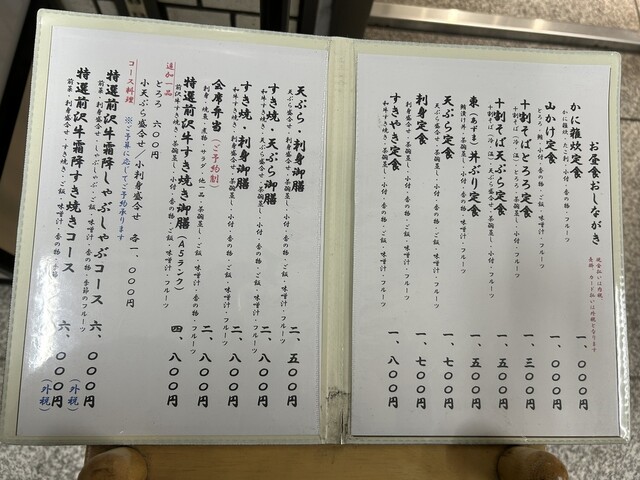 お昼食おしながき
現金払いは内税
金券・カード払いは外税となります
かに雑炊定食 一、〇〇〇円
かに雑炊・たこ刺・小付・香の物・フルーツ
山かけ定食 一、〇〇〇円
とろろ・鮪・小付・香の物・ご飯・味噌汁・フルーツ
十割そばとろろ定食 一、三〇〇円
十割そば(冷・温)とろろ・小付・香の物・ご飯・フルーツ
十割そば天ぷら定食 一、五〇〇円
十割そば(冷・温)天ぷら盛合せ・小付・香の物・ご飯・フルーツ
東(あずま)丼ぶり定食 一、五〇〇円
小付・香の物・味噌汁・フルーツ
天ぷら定食 一、七〇〇円
天ぷら盛合せ・茶碗蒸し・小付・香の物・ご飯・味噌汁・フルーツ
刺身定食 一、七〇〇円
刺身盛合せ・茶碗蒸し・小付・香の物・ご飯・味噌汁・フルーツ
すきやき定食 一、八〇〇円
和牛すき焼き・茶碗蒸し・小付・香の物・ご飯・味噌汁・フルーツ
天ぷら・刺身御膳 二、五〇〇円
天ぷら盛合せ・刺身盛合せ・茶碗蒸し・小付・香の物・ご飯・味噌汁・フルーツ
すき焼・天ぷら御膳 二、八〇〇円
和牛すき焼き・天ぷら盛合せ・茶碗蒸し・小付・香の物・ご飯・味噌汁・フルーツ
すき焼・刺身御膳 二、八〇〇円
和牛すき焼き・刺身盛合せ・茶碗蒸し・小付・香の物・ご飯・味噌汁・フルーツ
会席弁当(ご予約制) 二、八〇〇円
刺身・焼魚・煮物・サラダ・他一品・茶碗蒸し・ご飯・味噌汁・香の物・フルーツ
特選前沢牛すき焼き御膳(A5ランク) 四、八〇〇円
前沢牛すき焼き・茶碗蒸し・小付・香の物・ご飯・味噌汁・フルーツ
追加一品
とろろ 六〇〇円
小天ぷら盛合せ/小刺身盛合せ 各一、〇〇〇円
コース料理 ※ご予算に応じてご予約承ります
特選前沢牛霜降しゃぶしゃぶコース 六、〇〇〇円(外税)
前菜・刺身盛合せ・しゃぶしゃぶ・ご飯・味噌汁・香の物・季節のフルーツ
特選前沢牛霜降すき焼きコース 六、〇〇〇円(外税)
前菜・刺身盛合せ・すき焼き・ご飯・味噌汁・香の物・フルーツ